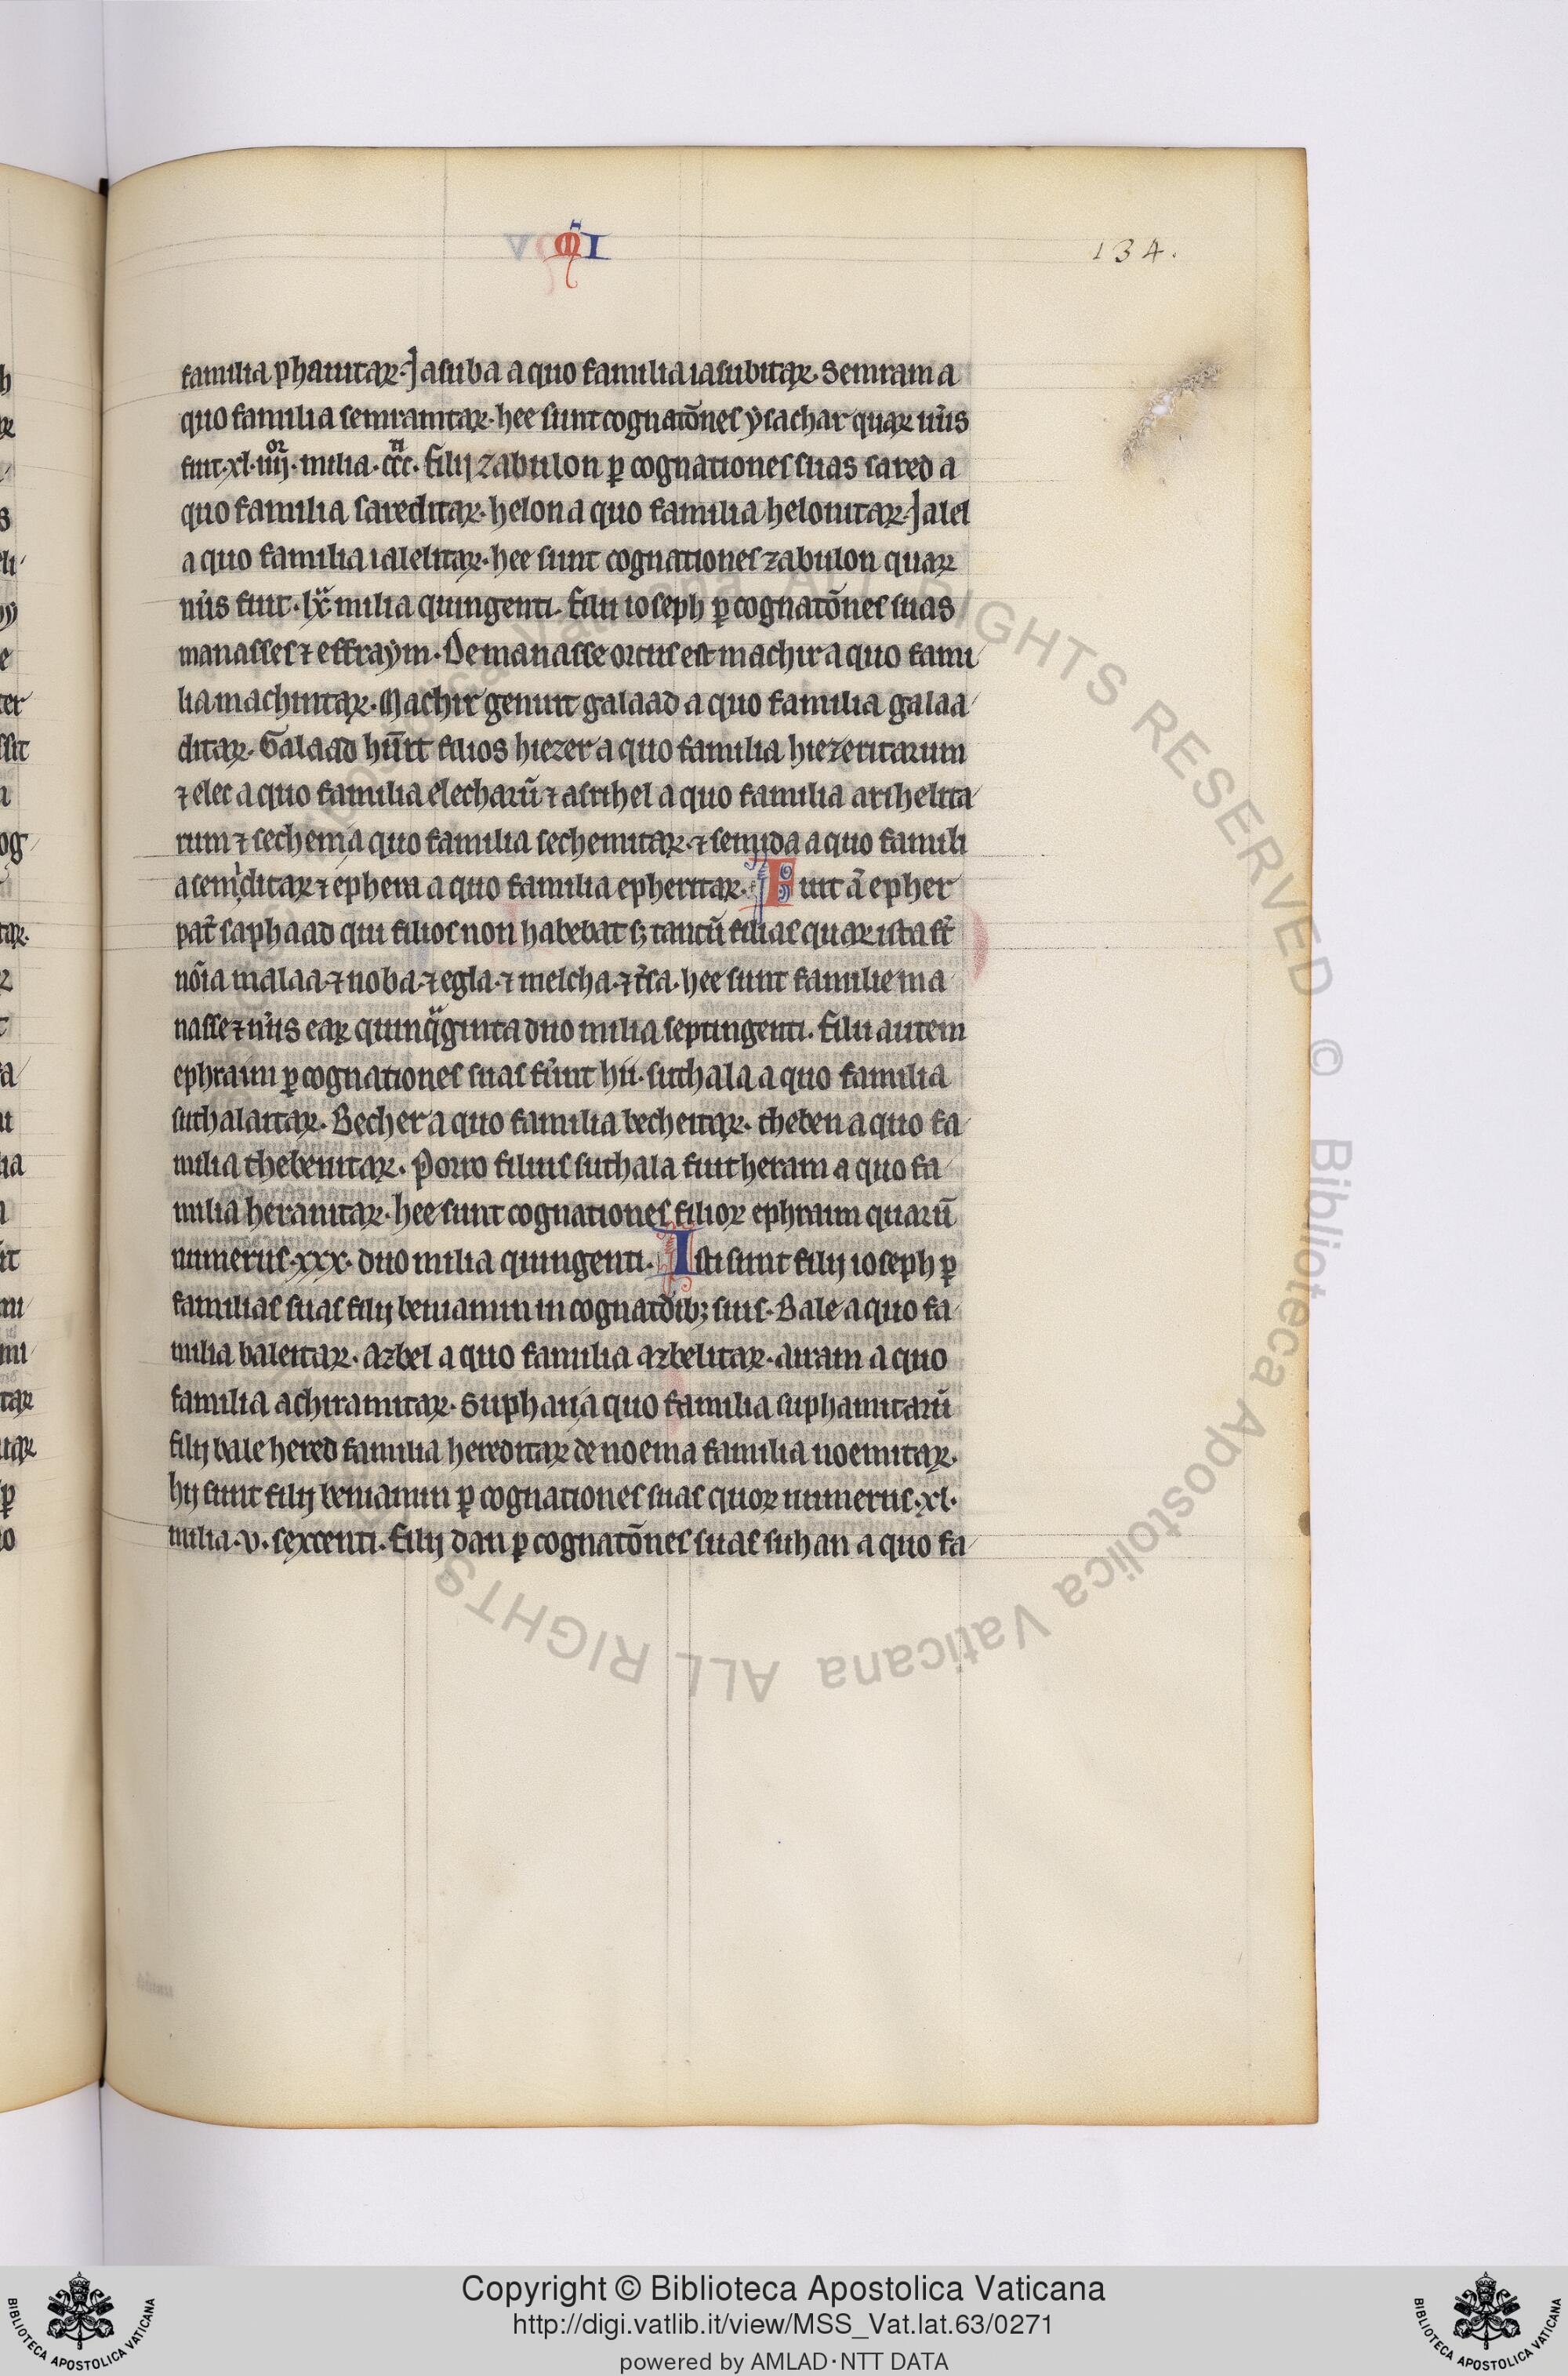 M̃I
134.
familia phauitaꝝ· Jasub a a quo familia iasubitaꝝ· Semram a
quo familia semramitaꝝ· hee sunt cognatõnes ysachar quaꝝ nũs
fuit·xl·iiijᵒʳ· milia·cccᵗⁱ· filij zabulon ꝑ cognationes suas sared a
quo familia sareditaꝝ· helon a quo familia helonitaꝝ· Jalel
a quo familia ialelitaꝝ· hee sunt cognationes zabulon quaꝝ
nũs fuit· lxᵃ milia quingenti. filii ioseph ꝑ cognatõnes suas
manasses ⁊ effraym. De manasse ortus est machir a quo fami
lia machiritaꝝ. Machir genuit galaad a quo familia galaa
ditaꝝ. Galaad hũit filios hiezer a quo familia hiezeritarum
⁊ elec a quo familia elecharũ ⁊ asrihel a quo familia arihelita
rum ⁊ sechem a quo familia sechemitaꝝ· ⁊ semida a quo famili
a semiditaꝝ ⁊ ephem a quo familia epheritaꝝ. Fuit ã epher
pat̃ saphaad qui filios non habebat sꝫ tantũ filias quaꝝ ista st̃
nõia malaa·⁊ noba·⁊ egla·⁊ melcha·⁊ t̃sa· hee sunt familie ma
nasse ⁊ nũs eaꝝ quinqᵃginta duo milia septingenti. filii autem
ephraim ꝑ cognationes suas fũnt hii· suthala a quo familia
suthalaitaꝝ. Becher a quo familia becheitaꝝ. theben a quo fa
milia thebenitaꝝ. Porro filius suthala fuit heram a quo fa
milia heranitaꝝ· hee sunt cognationes filioꝝ ephraim quarũ
numerus·xxx· duo milia quingenti. Isti sunt filij ioseph ꝑ
familias suas filij beniamin in cognatõibꝫ suis. Bale a quo fa
milia baleitaꝝ. azbel a quo familia azbelitaꝝ· airam a quo
familia achiramitaꝝ· Suphan a quo familia suphamitarũ
filij bale hered familia hereditaꝝ de noema familia noemitaꝝ.
hij sunt filij beniamin ꝑ cognationes suas quoꝝ numerus·xl·
milia·v· sexcenti. filij dan ꝑ cognatõnes suas suhan a quo fa
Copyright © Biblioteca Apostolica Vaticana
http://digi.vatlib.it/view/MSS_Vat.lat.63/0271
powered by AMLAD·NTT DATA